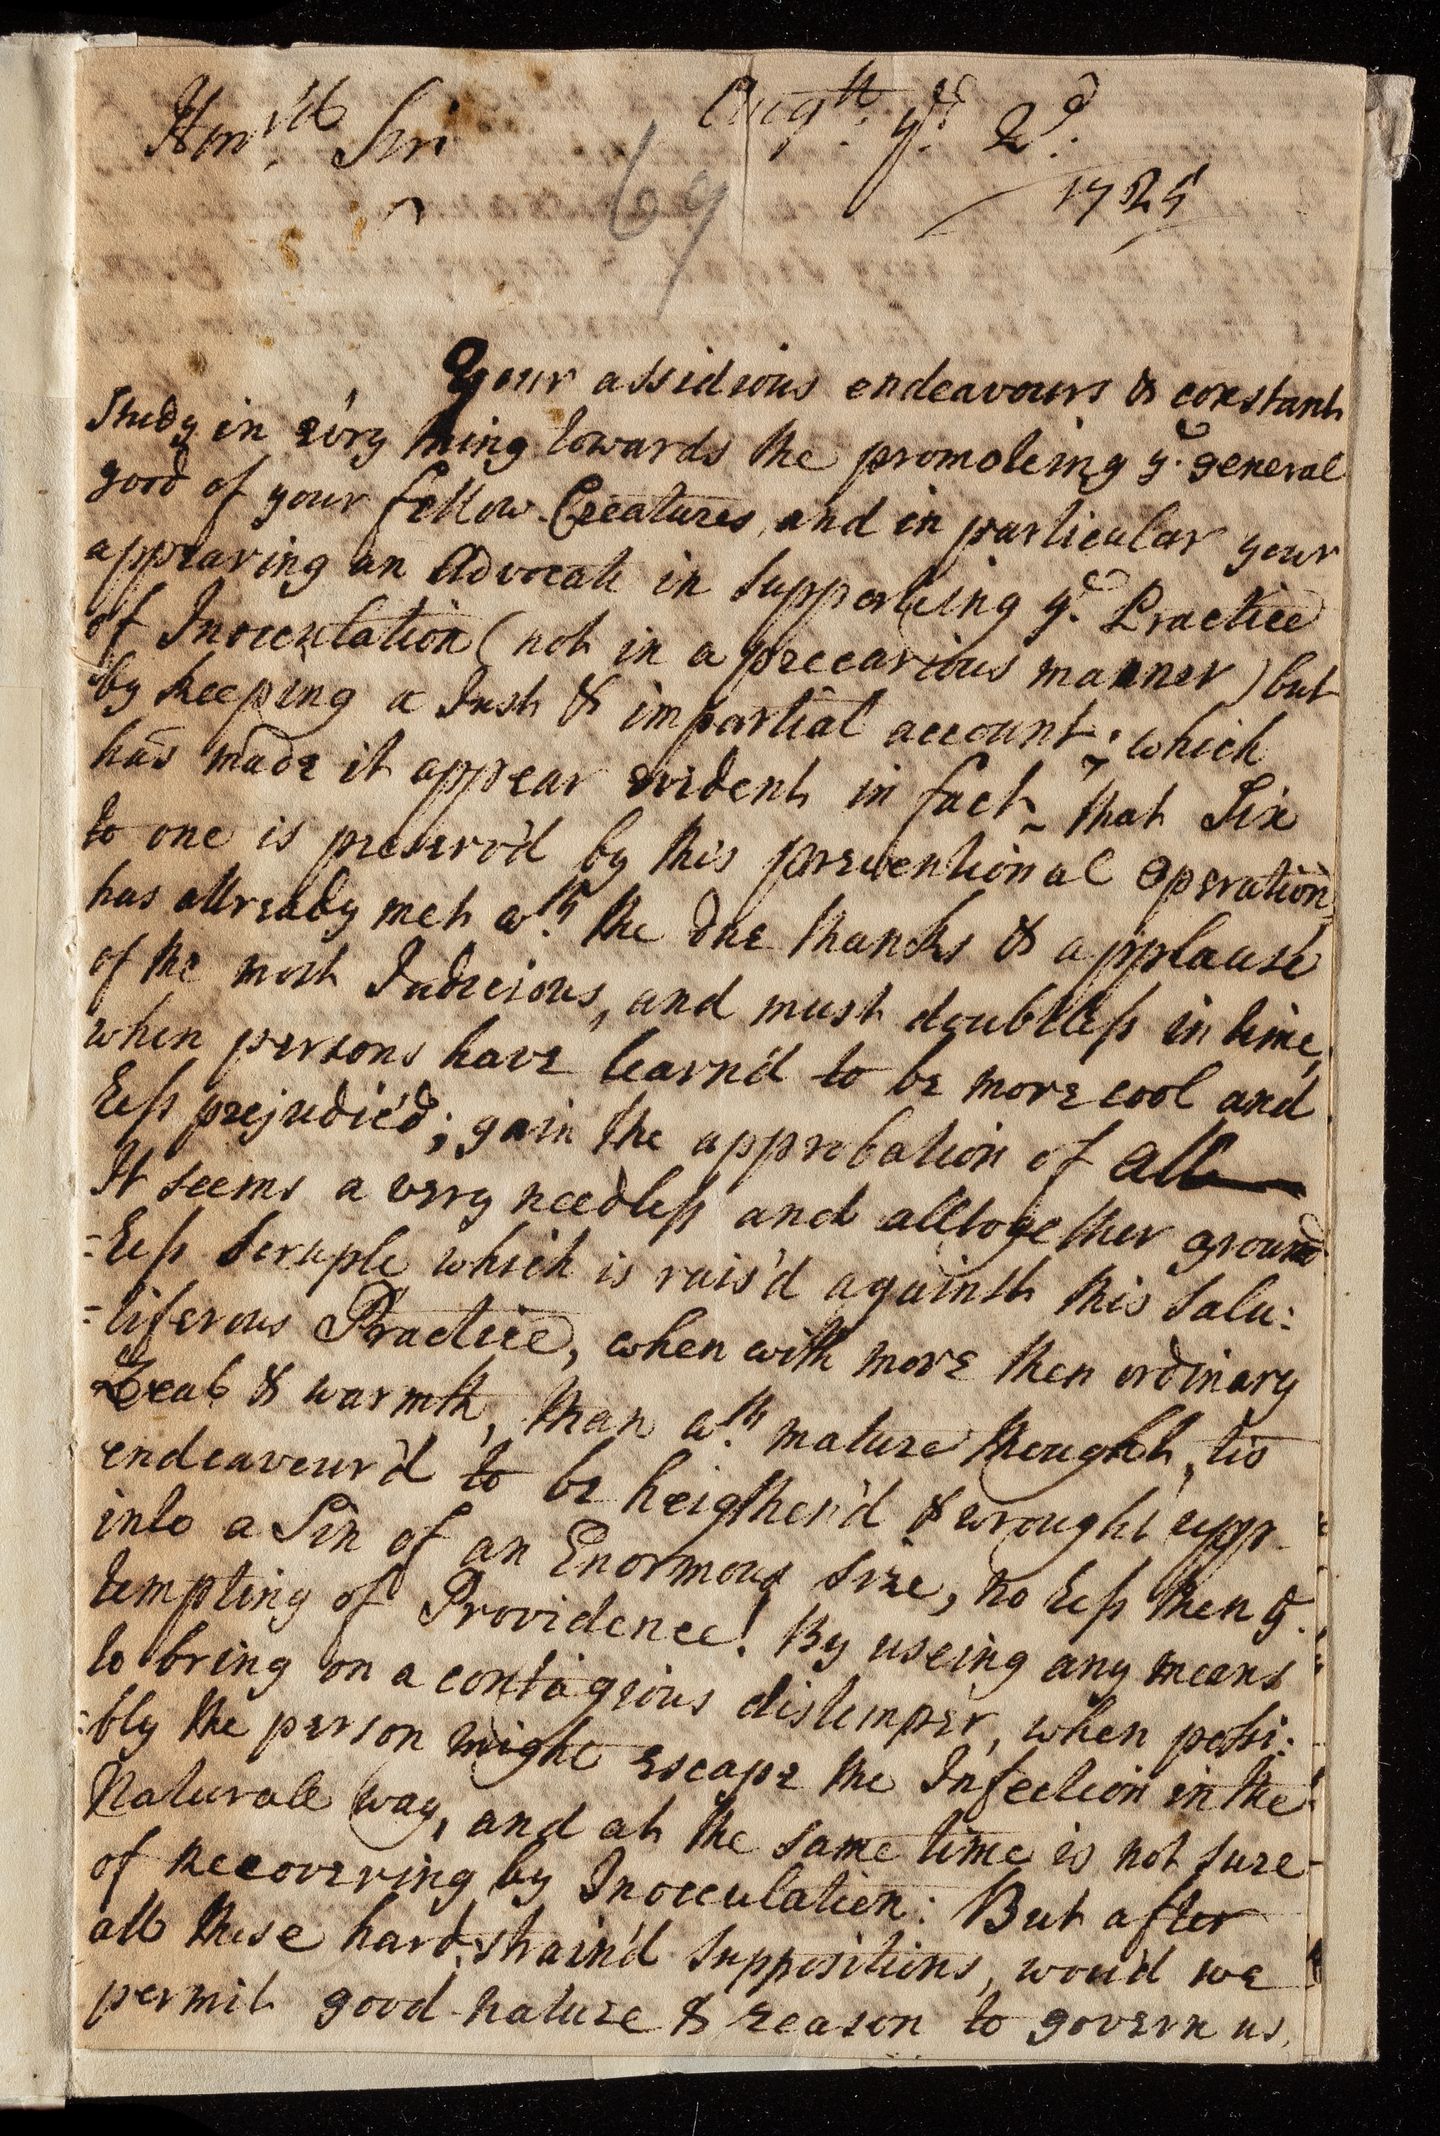 Hon.rble Sir Aug.tt y.e 2.d
69
1725
Your assidious endeavours & constant
Study in ev'ry thing towards the promoteing y.e general
good of your fellow-Creatures, and in particular your
appearing an Advocate in supporteing y.e Practice
of Inocculation (not in a precarious manner) but
by keeping a Just & impartial account; which
has made it appear evident in fact, that Six
to one is preserv'd by this preventional Operation,
has allready met w.th the due thanks & applause
of the most Judicious, and must doubtless in time,
when persons have learn'd to be more cool and
less prejudic'd; gain the approbation of all
It seems a very needless and alltogether ground
=less Scruple which is rais'd against this Salu:
=tiferous Practice, when with more then ordinary
Zeal & warmth, than w.th mature thought, tis
endeavour'd to be heigthen'd & wrought upp
into a Sin of an Enormous Size, no less then y.e
tempting of Providence! By useing any means
to bring on a contagious distemper, when possi:
=bly the person might escape the Infection in the
Naturall way, and at the same time is not sure
of Recovering by Inocculation: But after
all these hard-strain'd suppositions, wou'd we
permit good-nature & reason to govern us,